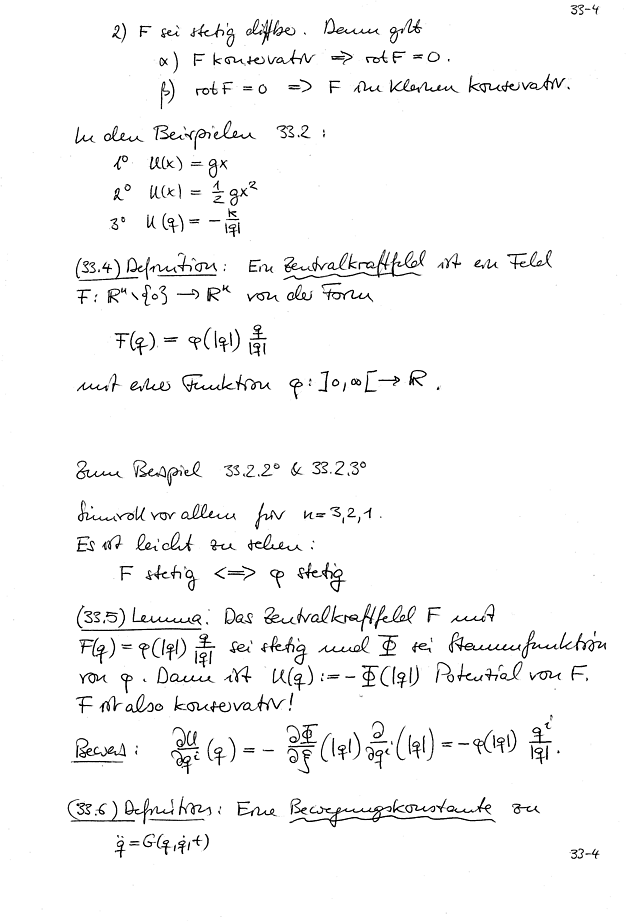 33-4
2) F sei stetig diffbar. Dann gilt
α) F konservativ ⟹ rot F = 0.
β) rot F = 0 ⟹ F im Kleinen konservativ.
In den Beispielen 33.2:
1° U(x) = gx
2° U(x) = ½ gx²
3° U(q) = - k/|q|
(33.4) Definition: Ein Zentralkraftfeld ist ein Feld
F: ℝⁿ \ {0} → ℝⁿ von der Form
F(q) = φ(|q|) q/|q|
mit einer Funktion φ: ]0,∞[ → ℝ.
Zum Beispiel 33.2.2° & 33.2.3°
Sinnvoll vor allem für n=3,2,1.
Es ist leicht zu sehen:
F stetig <=> φ stetig
(33.5) Lemma: Das Zentralkraftfeld F mit
F(q) = φ(|q|) q/|q| sei stetig und Φ sei Stammfunktion
von φ. Dann ist U(q) := -Φ(|q|) Potential von F.
F ist also konservativ!
Beweis: ∂U/∂qⁱ (q) = - ∂Φ/∂ξ (|q|) ∂/∂qⁱ (|q|) = -φ(|q|) qⁱ/|q|.
(33.6) Definition: Eine Bewegungskonstante zu
q̈ = G(q,q̇,t)
33-4